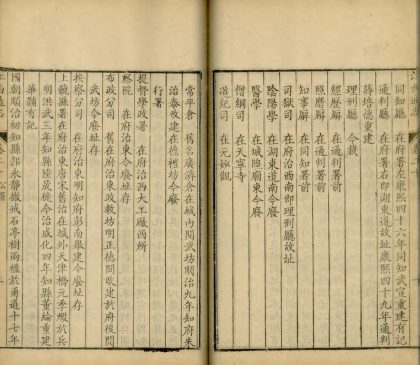 同知廳 在府署左康熙四十六年同知武宣重建有記
通判廳 在府署右即湖東道故址康熙四十九年通判
蔣培德重建
理刑廳 今裁
經歷廨 在通判署前
照磨廨 在通判署前
知事廨 在同知署前
司獄司 在府治西南即理刑廳故址
陰陽學 在湖東道南今廢
醫學 在城隍廟東今廢
僧綱司 在天寧寺
道紀司 在元妙觀
常平倉 舊名廣濟倉在城內閱武坊順治九年知府朱
治泰改建在德裡坊今廢
行署
提督學政署 在府治西大工廠西所
察院 在府治東今廢址存
布政分司 舊在府治東政教坊明正德間改建於府後閱
武坊今廢址存
按察分司 在府治東明知府彭南皋建今廢址存
上饒縣署在府治東唐宋舊治在城外天津橋元季燬於兵
明洪武三年知縣陸晟徙今治成化四年知縣董綸重建
華韡有記
國朝順治初知縣郭永靜撤戒石亭樹兩樓於甬道十七年